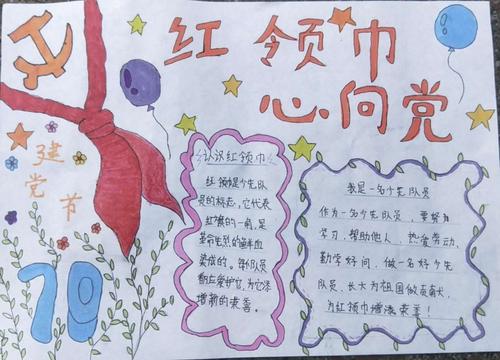 红领巾
心向党
建
党
节
认识红领巾
红领巾是少先队
员的标志,它代表
红旗的一角,是
革命先烈的鲜血
染成的。每个队员
都应爱护它,为它添
增新的荣誉。
我是一名少先队员
作为一名少先队员,要努力
学习,帮助他人,热爱劳动,
勤学好问,做一名好少先
队员,长大为祖国做贡献,
为红领巾增添荣誉!